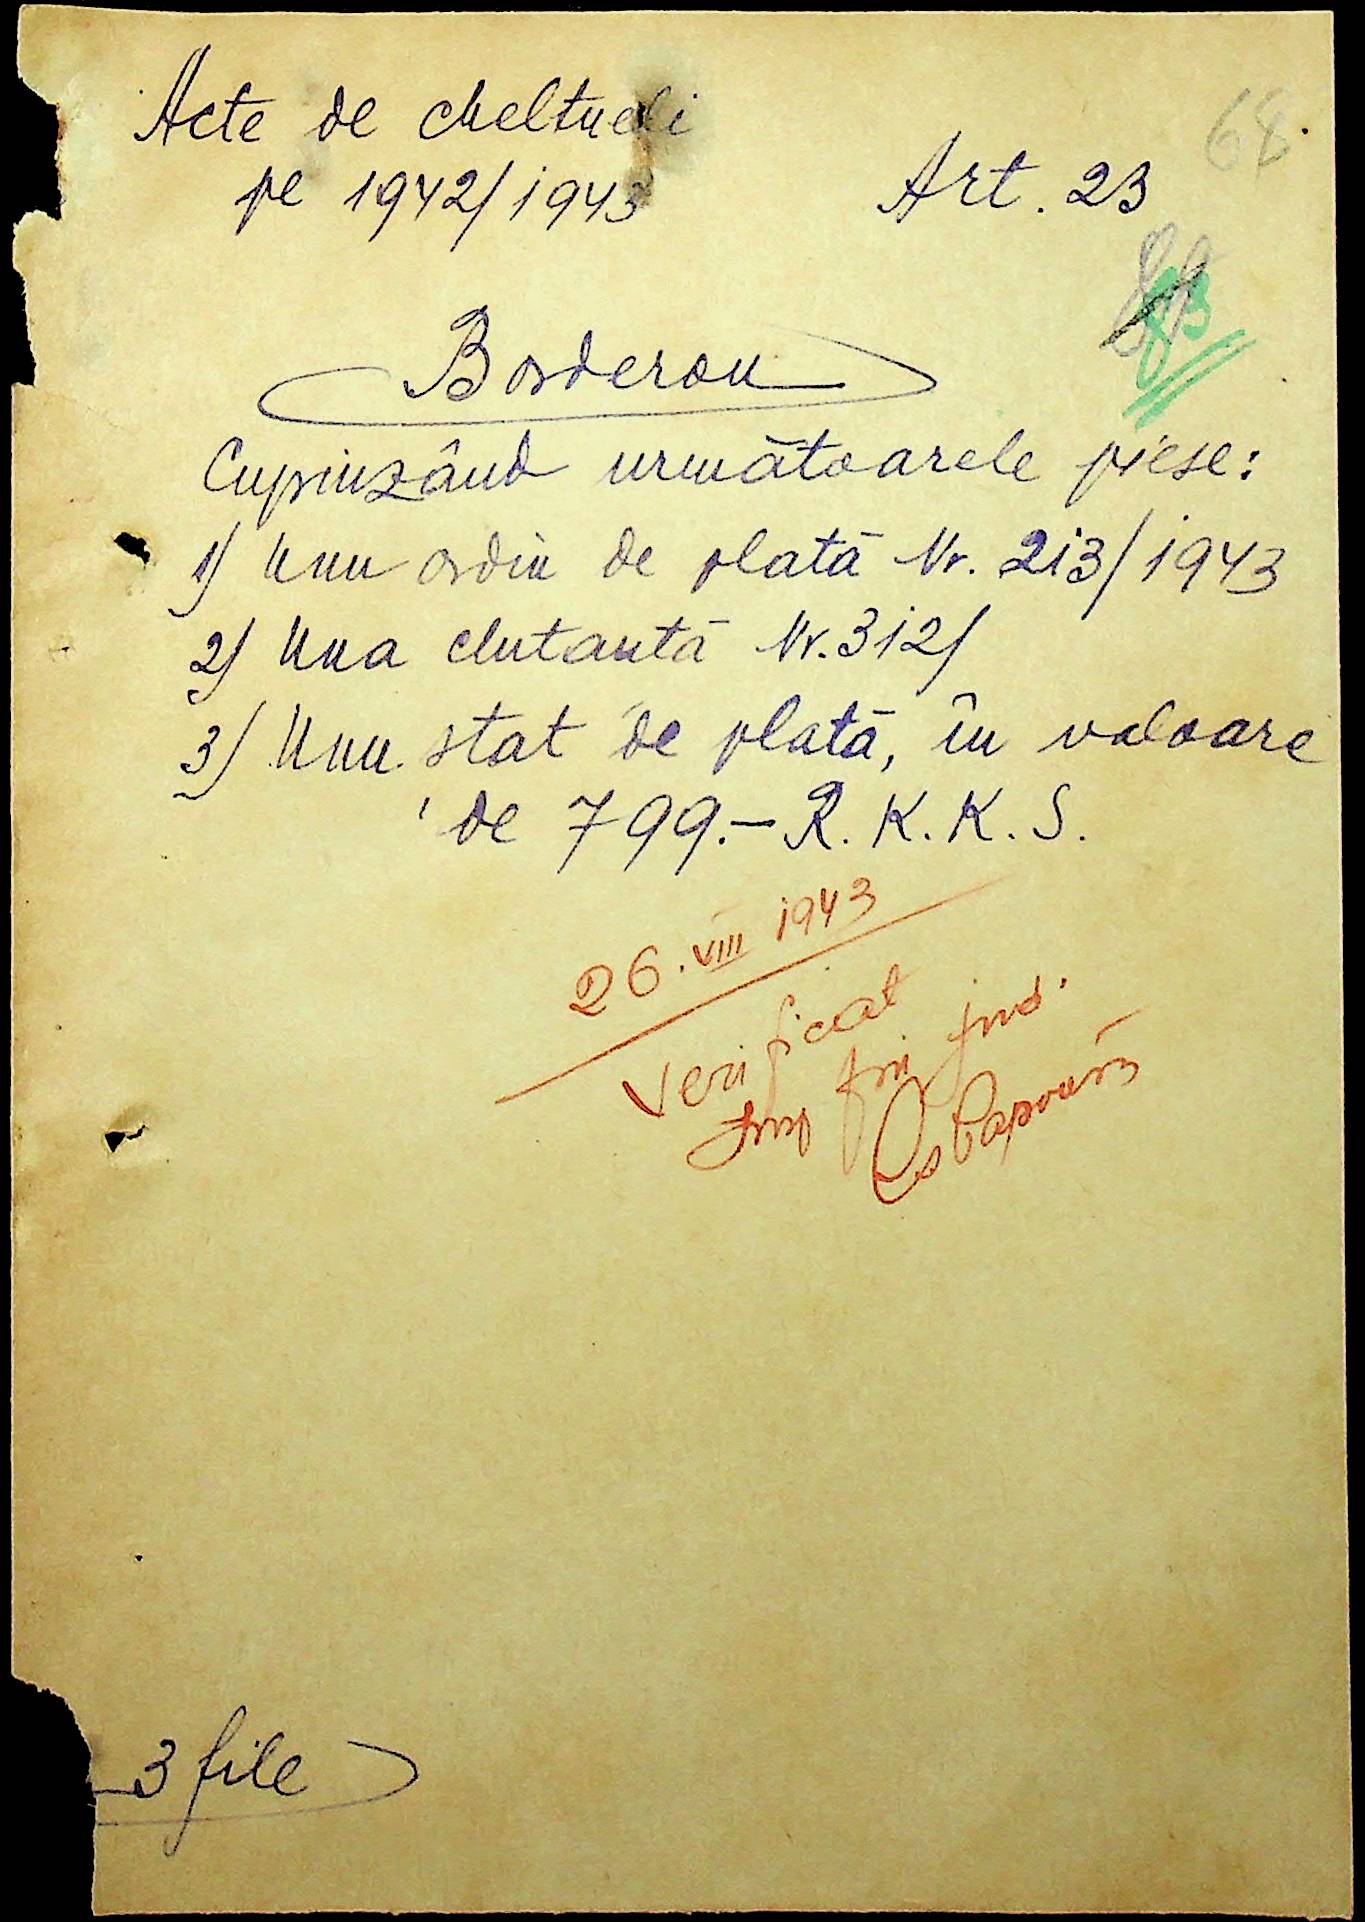 68
Acte de cheltueli
pe 1942/1943
Art. 23
Borderou
Cuprinzând următoarele piese:
1) Unu ordin de plată Nr. 213/1943
2) Una chitantă Nr. 312/
3) Unu stat de plată, în valoare
de 799.- R. K. K. S.
26. VIII 1943
Verificat
fin jud.
3 file